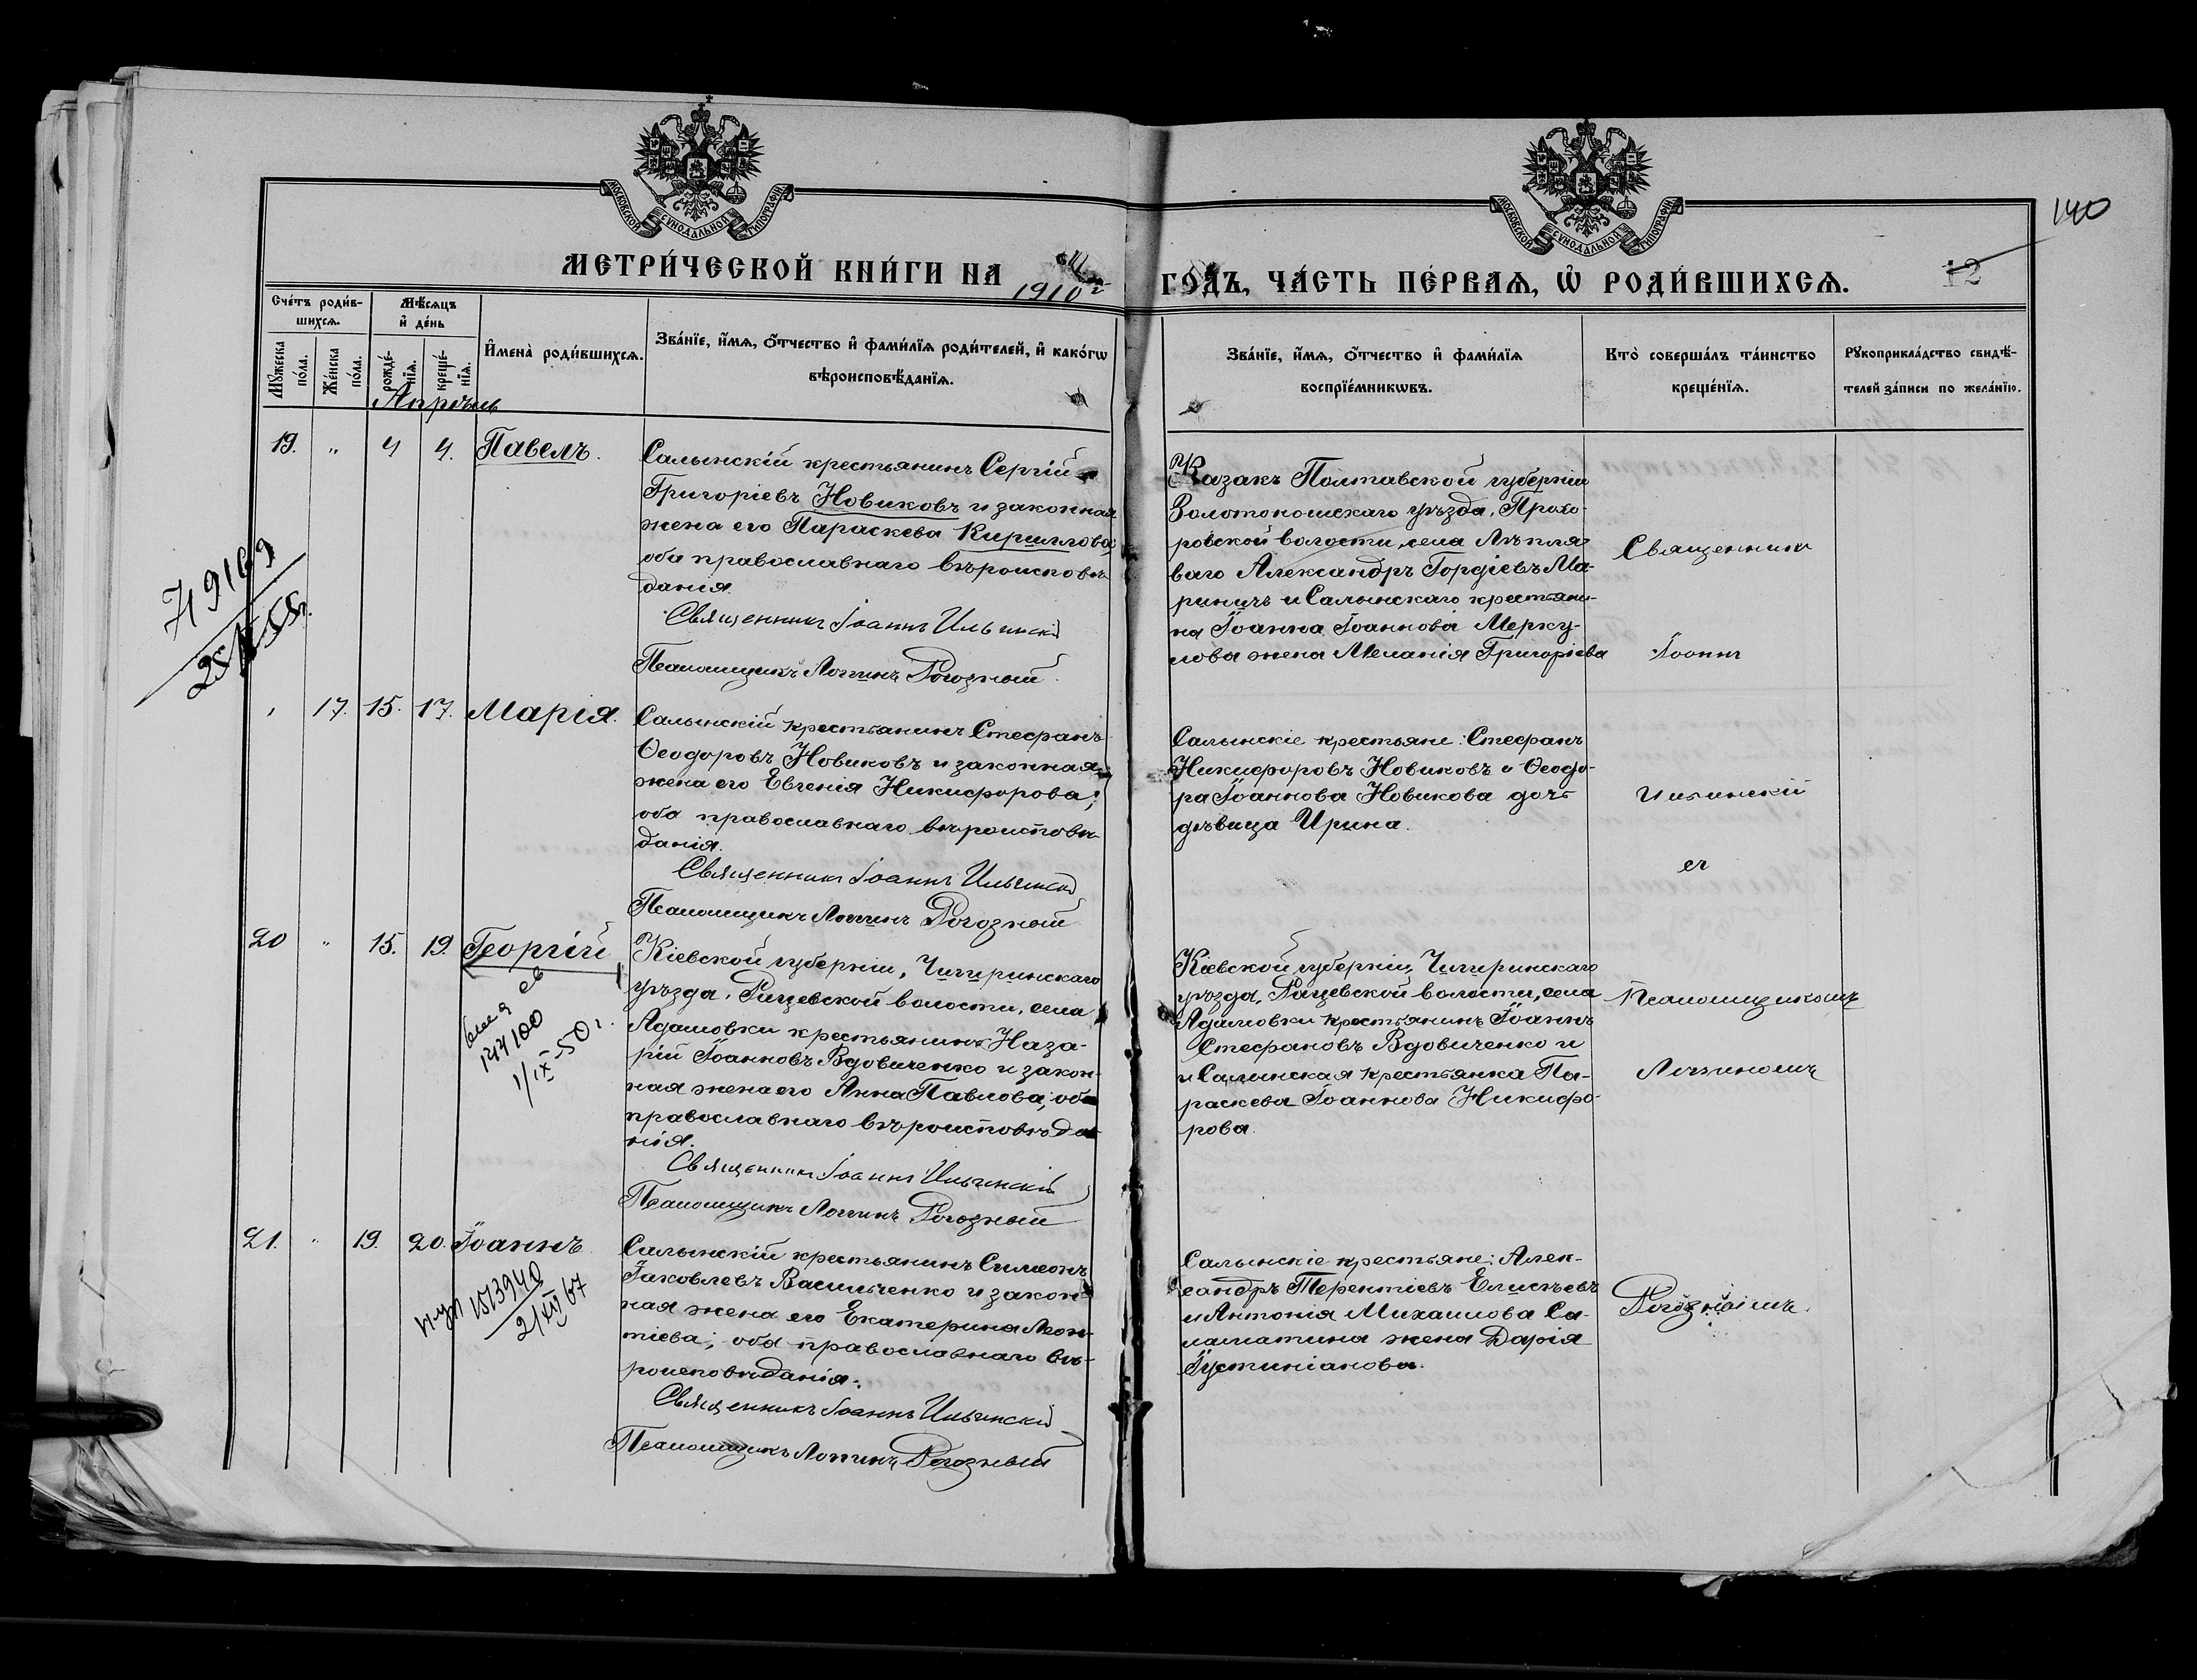 МОСКОВСКОЙ СѴНОДАЛЬНОЙ ТИПОГРАФІИ
МОСКОВСКОЙ СѴНОДАЛЬНОЙ ТИПОГРАФІИ
140
12
МЕТРИ́ЧЕСКОЙ КНИ́ГИ НА 1910й
ГОДЪ, ЧА́СТЬ ПЕ́РВАЯ, Ѡ҆ РОДИ́ВШИХСЯ.
Сче́тъ роди́в-
шихся.
Мꙋ́жеска
по́ла.
Же́нска
по́ла.
Мѣ́сяцъ
и҆ де́нь
рожде́-
нїя.
креще́-
нїя.
И҆мена̀ роди́вшихся.
Зва́нїе, и҆́мя, ѻ҆́тчество и҆ фами́лїя роди́телей, и҆ како́гѡ
вѣроисповѣ́данїя.
Зва́нїе, и҆́мя, ѻ҆́тчество и҆ фами́лїя
воспрїе́мникѡвъ.
Кто̀ соверша́лъ та́инство
креще́нїя.
Рꙋкоприкла́дство свидѣ́-
телей за́писи по жела́нїю.
Апрѣль
19. " 4 4. Павелъ.
Салынскій крестьянинъ Сергій
Григоріевъ Новиковъ и законная
жена его Параскева Кириллова;
оба православнаго вѣроисповѣ-
данія.
Священникъ Іоаннъ Ильинскій
Псаломщикъ Логгинъ Рогозный.
Казакъ Полтавской губерніи
Золотоношскаго уѣзда, Прохо-
ровской волости, села Лѣпля-
ваго Александръ Гордіевъ Ма-
риничъ и Салынскаго крестьяни-
на Іоанна Іоаннова Мерку-
лова жена Меланія Григоріева
Священникъ
Іоаннъ
79169
" 17. 15. 17. Марія.
Салынскій крестьянинъ Стефанъ
Ѳеодоровъ Новиковъ и законная
жена его Евгенія Никифорова;
оба православнаго вѣроисповѣ-
данія.
Священникъ Іоаннъ Ильинскій
Псаломщикъ Логгинъ Рогозный
Салынскіе крестьяне: Стефанъ
Никифоровъ Новиковъ и Ѳеодо-
ра Іоаннова Новикова дочь
дѣвица Ирина.
Ильинскій
съ
20 " 15. 19. Георгій
144100
1/IX-50 г.
Кіевской губерніи, Чигиринскаго
уѣзда, Рацевской волости, села
Адамовки крестьянинъ Наза-
рій Іоанновъ Вдовиченко и закон-
ная жена его Анна Павлова; оба
православнаго вѣроисповѣда-
нія.
Священникъ Іоаннъ Ильинскій
Псаломщикъ Логгинъ Рогозный
Кіевской губерніи, Чигиринскаго
уѣзда, Рацевской волости, села
Адамовки крестьянинъ Іоаннъ
Стефановъ Вдовиченко и
и Салынская крестьянка Па-
раскева Іоаннова Никифо-
рова.
Псаломщикомъ
Логгиномъ
21. " 19. 20. Іоаннъ
1513940
Салынскій крестьянинъ Симеонъ
Іаковлевъ Васильченко и закон-
ная жена его Екатерина Леон-
тіева; оба православнаго вѣ-
роисповѣданія.
Священникъ Іоаннъ Ильинскій
Псаломщикъ Логгинъ Рогозный
Салынскіе крестьяне: Алек-
сандръ Терентіевъ Елисѣевъ
и Антонія Михаилова Са-
ламатина жена Дарія
Іустиніанова.
Рогознымъ.